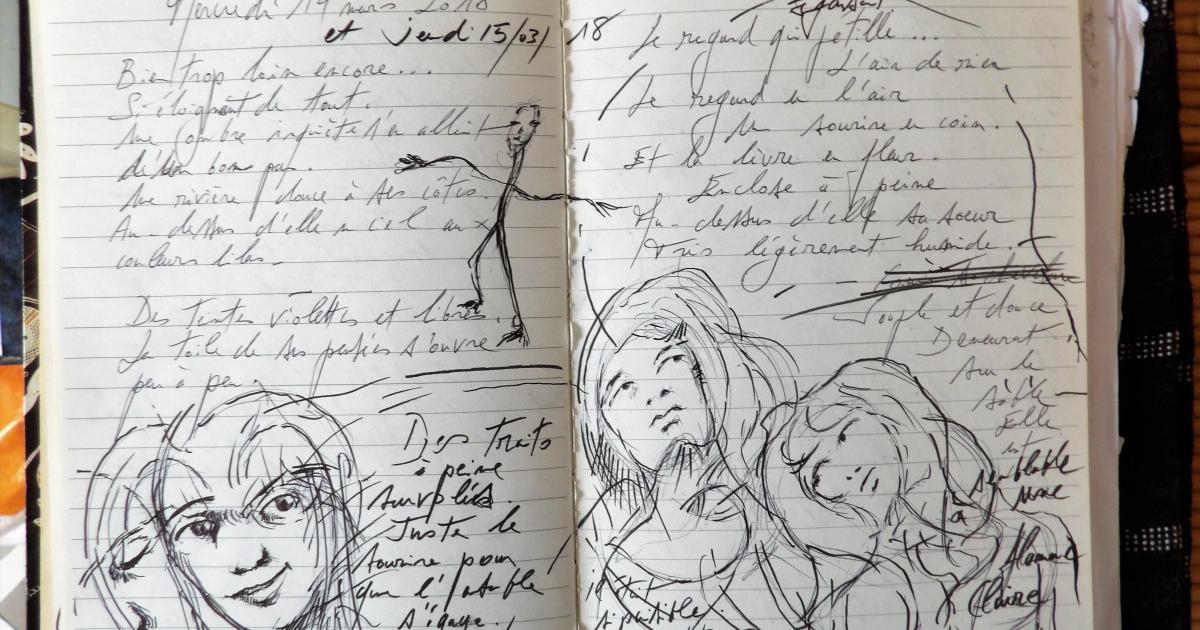 Mercredi 14 mars 2018
et jeudi 15/03/18
Bien trop loin encore...
S'éloignant de tout.
Une ombre inquiète s'en allait
d'un bon pas.
Une rivière douce à ses côtés.
Au-dessus d'elle un ciel aux
couleurs lilas.
Des teintes violettes et libres.
La toile de ses pensées s'ouvre
peu à peu.
Des traits
à peine
Juste le
sourire pour
que l'
s'égaye.
Le regard qui pétille...
L'air de rien
Le regard en l'air
Un sourire en coin.
Et la livre en fleur.
Enclose à peine
Au-dessus d'elle sa soeur
Très légèrement humide.
Souple et douce
Demeurant
Sur le
sable
Elle
est
semblable
à une
flamme
claire